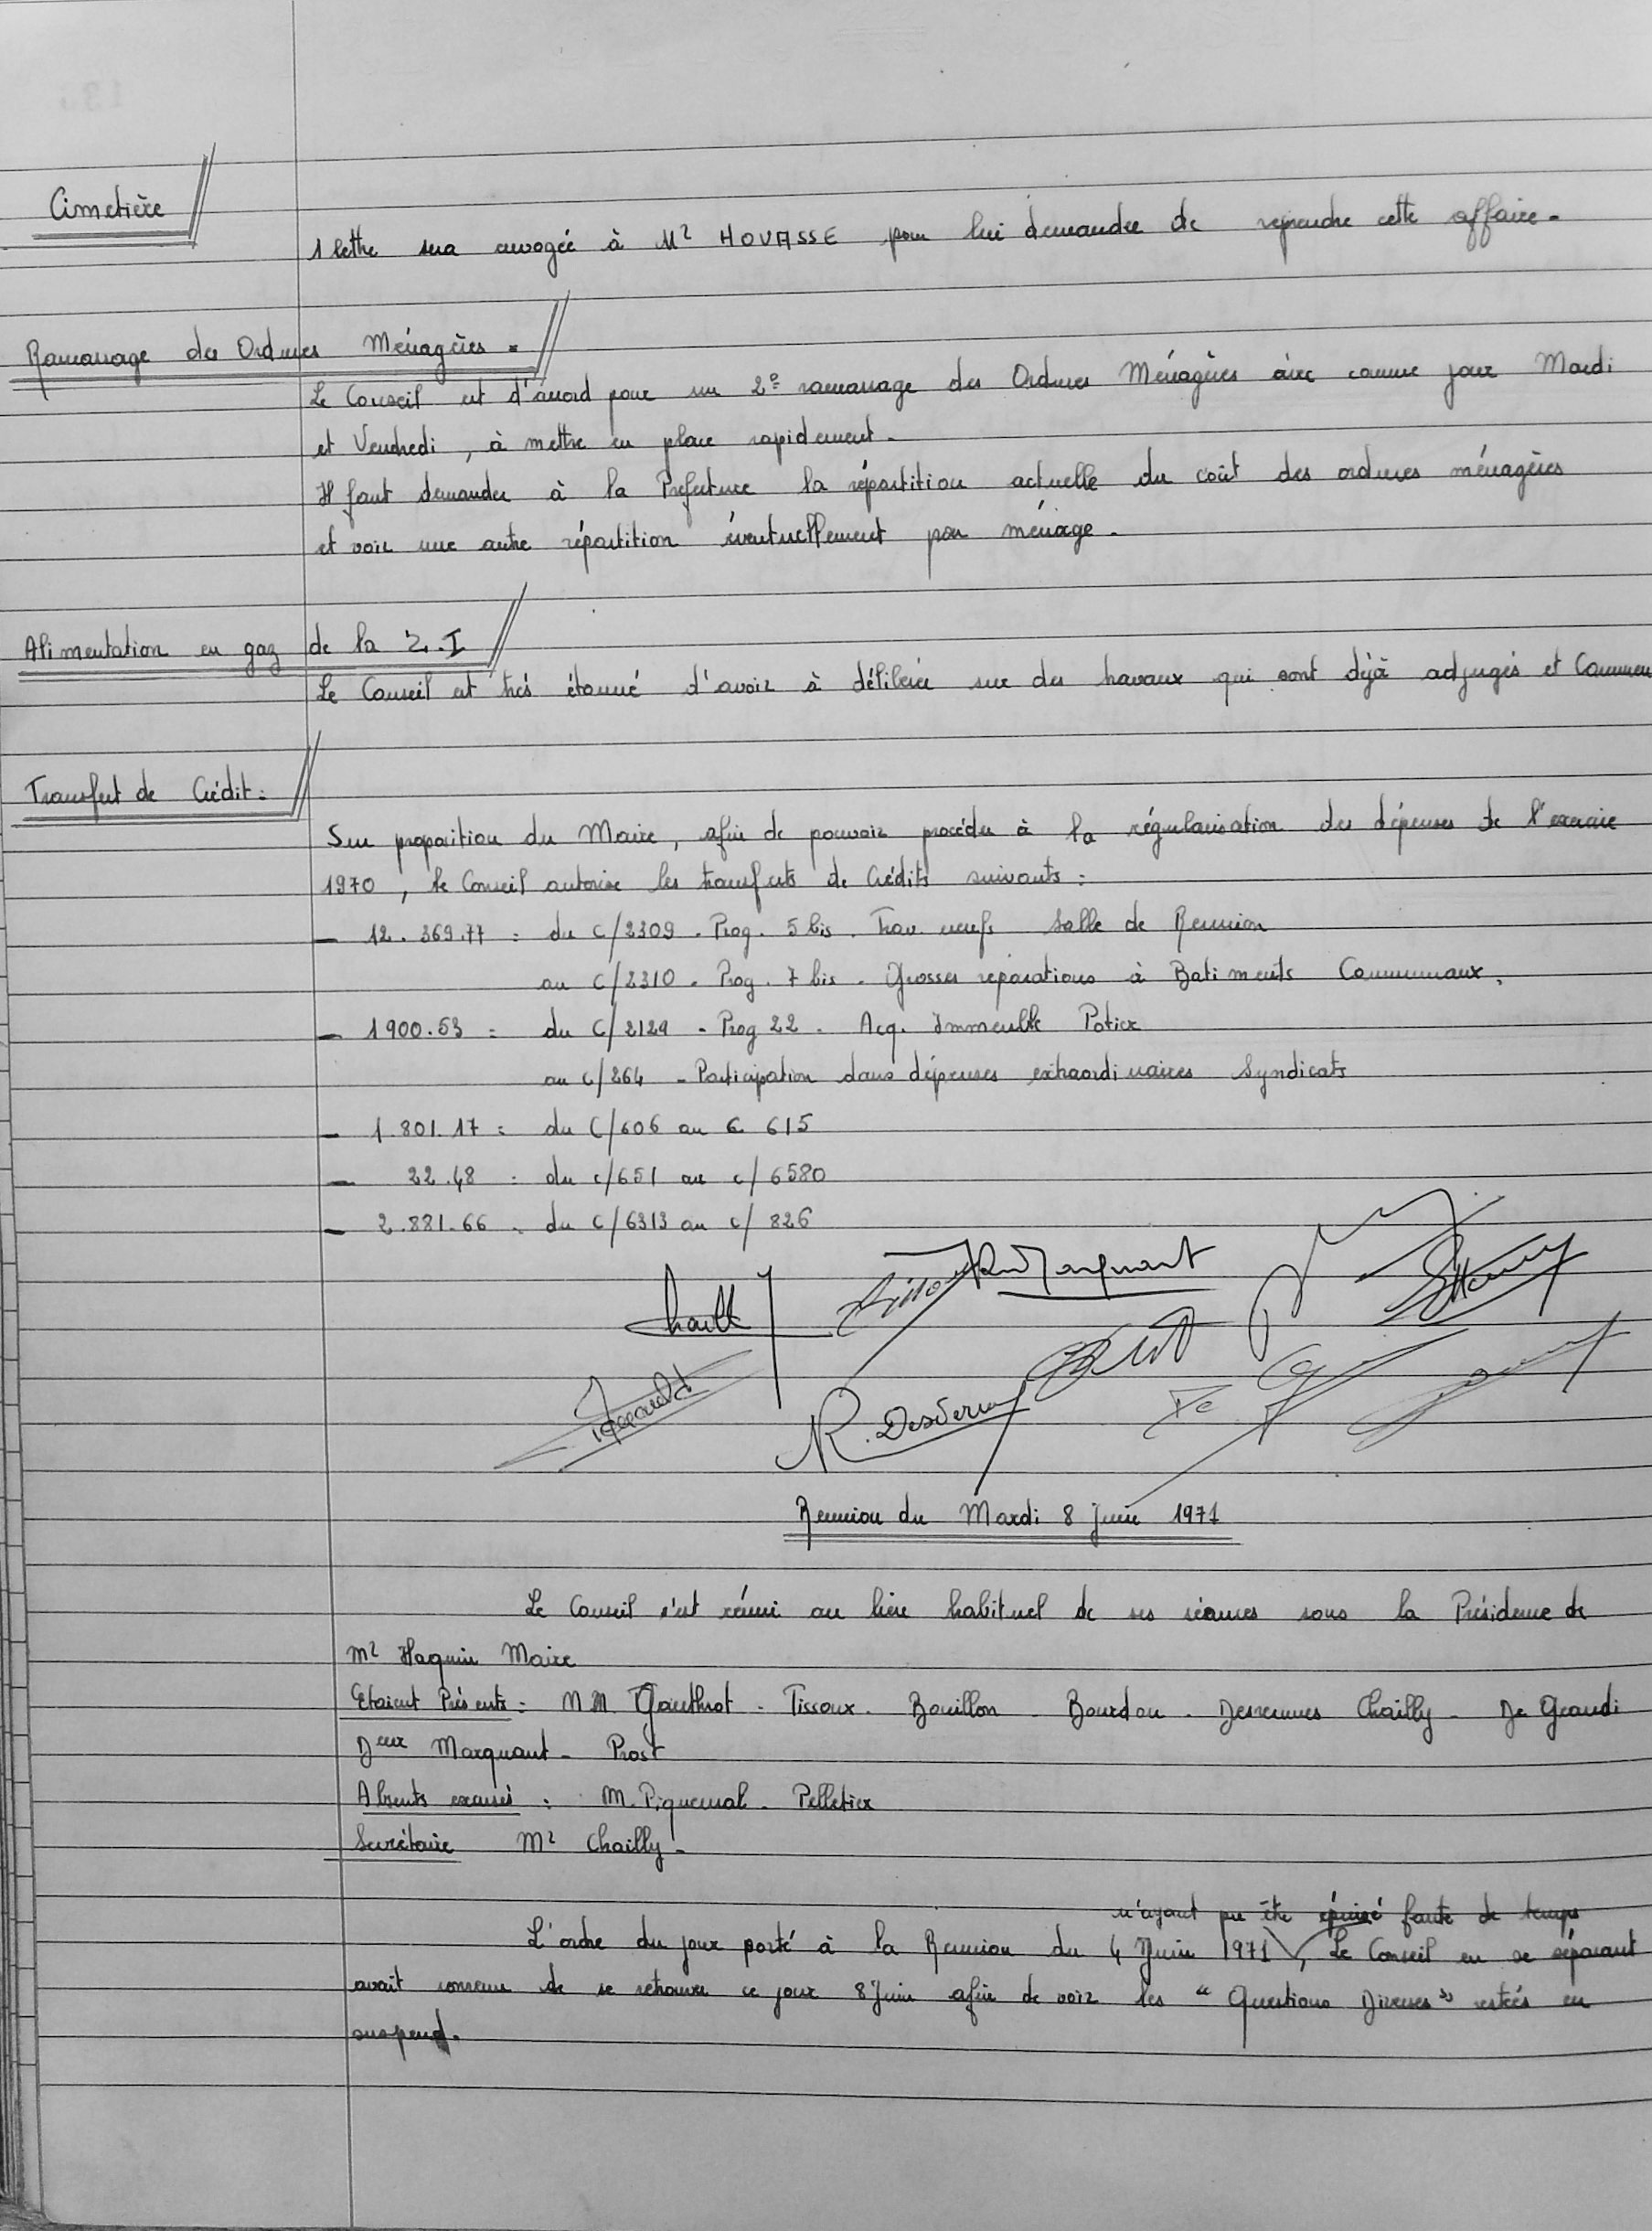 Cimetière
1 lettre sera envoyée à Mr HOUASSE pour lui demander de reprendre cette affaire.
Ramassage des Ordures Ménagères.
Le Conseil est d'accord pour un 2e ramassage des Ordures Ménagères avec comme jour Mardi
et Vendredi, à mettre en place rapidement.
Il faut demander à la Prefecture la répartition actuelle du coût des ordures ménagères
et voir une autre répartition éventuellement par ménage.
Alimentation en gaz de la Z.I
Le Conseil est très étonné d'avoir à délibérer sur des travaux qui sont déjà adjugés et Commen
Transfert de Crédit:
Sur proposition du Maire, afin de pouvoir procéder à la régularisation des dépenses de l'exercice
1970, le Conseil autorise les transferts de Crédits suivants:
- 12.369.77 : du C/2309 - Prog. 5 bis. Trav. neufs Salle de Reunion
au C/2310 - Prog. 7 bis - Grosses reparations à Batiments Communaux.
- 1900.53 : du C/2129 - Prog 22 - Acq. Immeuble Potier
au C/264 - Participation dans dépenses extraordinaires Syndicats
- 1.801.17 : du C/606 au C 615
- 22.48 : du c/651 au c/6580
- 2.881.66 : du C/6313 au c/826
Chailly
Marquant
R. Desserennes
Reunion du Mardi 8 Juin 1971
Le Conseil s'est réuni au lieu habituel de ses séances sous la Présidence de
Mr Haquin Maire
Etaient Présents: MM. Gauthrot - Tissoux. Bouillon - Bourdon - Desserennes Chailly - De Grandi
Deux Marquant - Prost
Absents excusés : M. Piquemal - Pelletier
Secrétaire Mr Chailly -
n'ayant pu être épuisé faute de temps
L'ordre du jour porté à la Reunion du 4 Juin 1971, Le Conseil en se séparant
avait convenu de se retrouver ce jour 8 Juin afin de voir les "Questions Diverses" restées en
suspend.